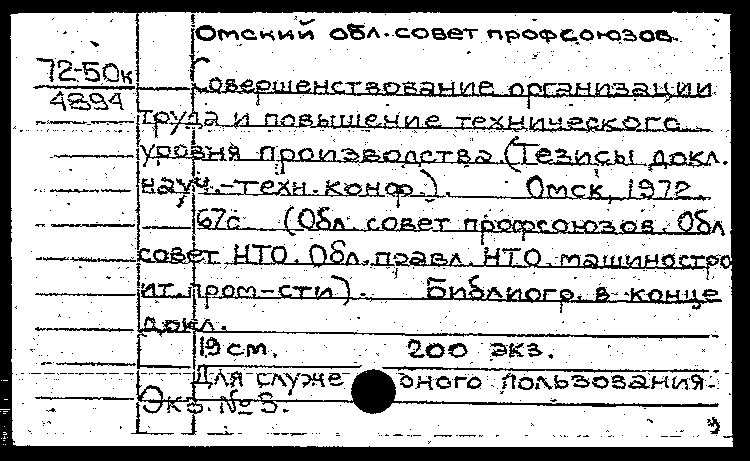 Омский обл. совет профсоюзов.
72-50к
4894
Совершенствование организации
труда и повышение технического
уровня производства. (Тезисы докл.
науч.-техн. конф.). Омск, 1972.
67с (Обл. совет профсоюзов. Обл.
совет НТО. Обл. правл. НТО. машиностро
ит. пром-сти). Библиогр. в конце
докл.
19 см. 200 экз.
Для служе оного пользования.
Экз. № 3.